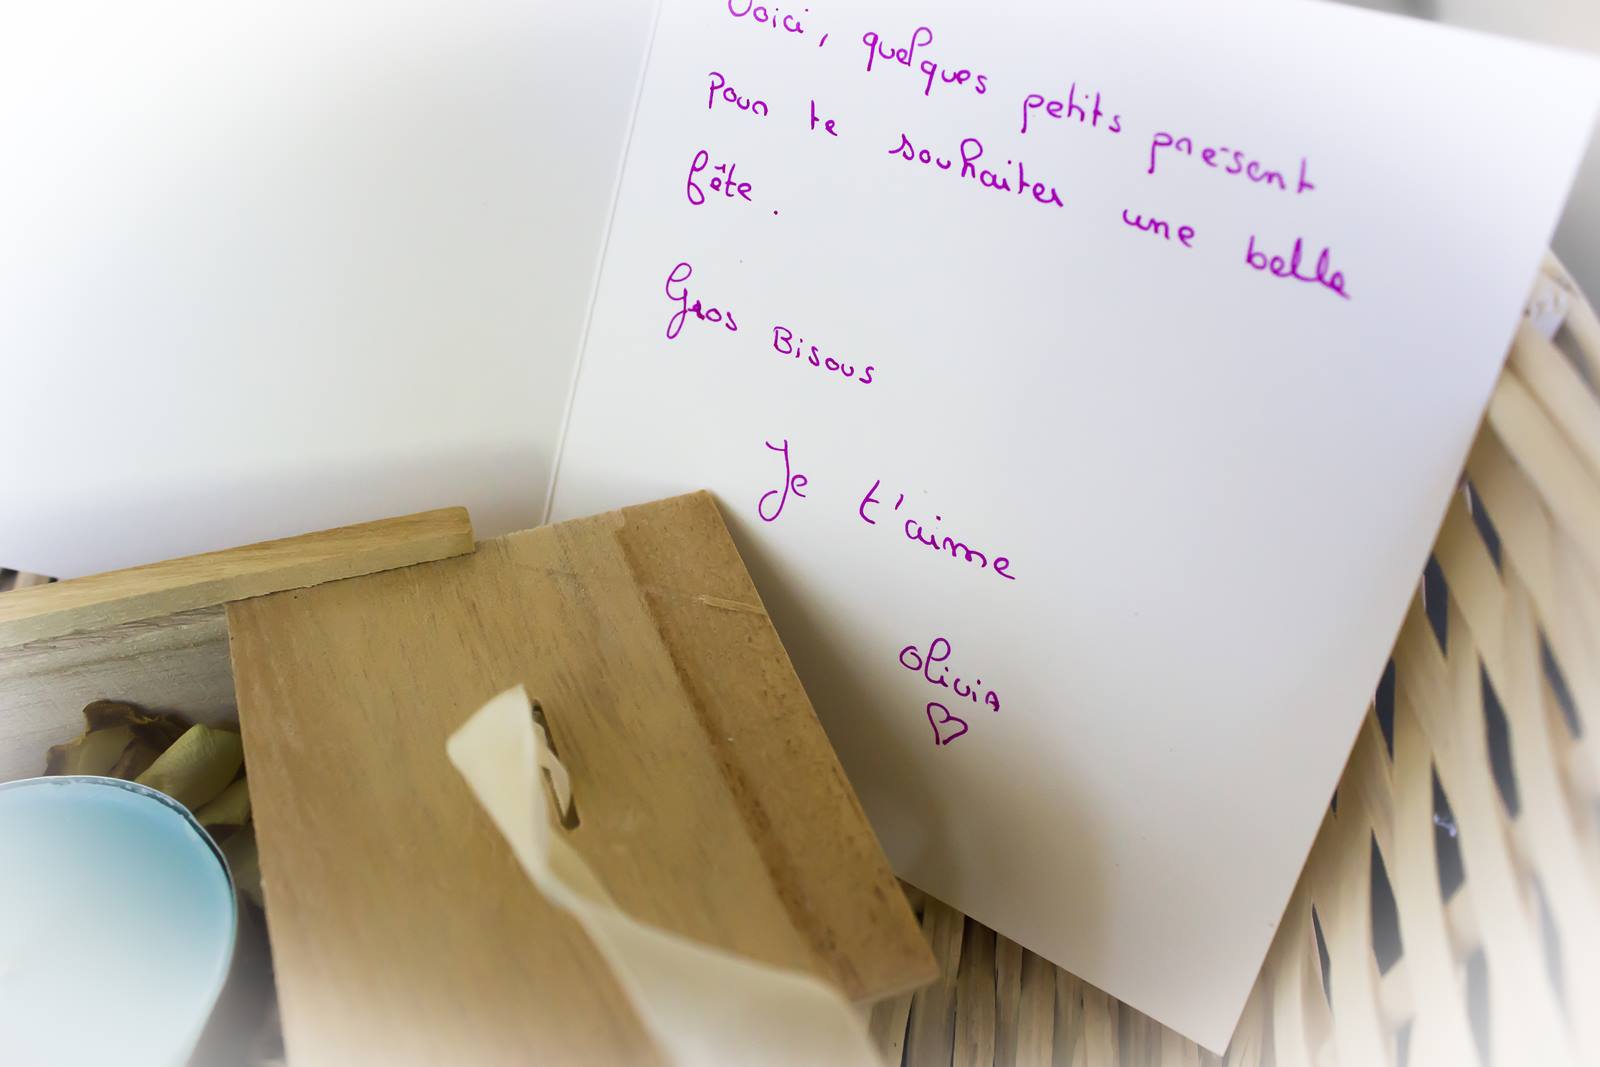 Voici, quelques petits présent
pour te souhaiter une belle
fête.
Gros Bisous
Je t'aime
Olivia